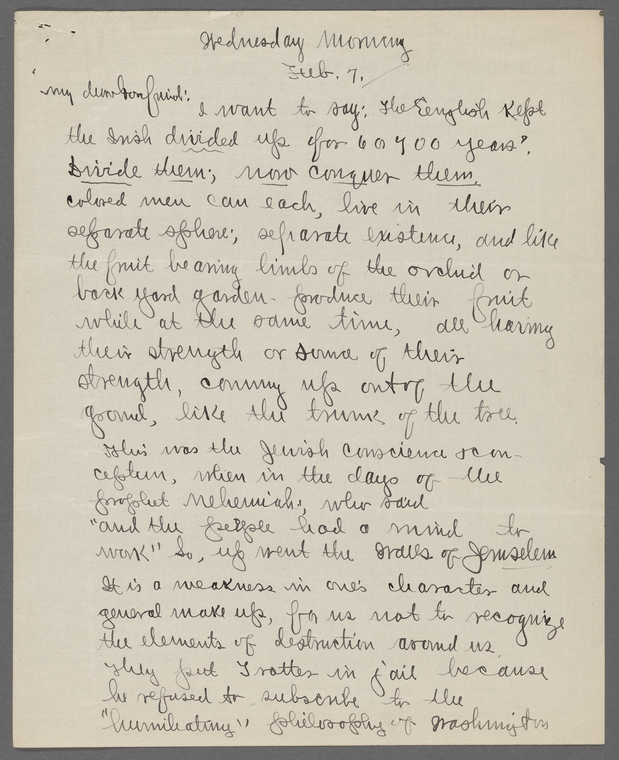 Wednesday Morning
Feb. 7.
My dear friend:
I want to say: The English kept
the Irish divided up for 6 or 700 years.
Divide them; now conquer them.
colored men can each, live in their
separate sphere; separate existence, and like
the fruit bearing limbs of the orchid or
back yard garden - produce their fruit
while at the same time, all having
their strength or some of their
strength, coming up out of the
ground, like the trunk of the tree.
This was the Jewish conscience & con-
ception, when in the days of the
prophet Nehemiah; who said
"and the people had a mind to
work" So, up went the walls of Jeruselem
It is a weakness in one's character and
general make up, for us not to recognize
the elements of destruction around us.
They put Trotter in jail because
he refused to subscribe to the
"humiliating" philosophy of Washington